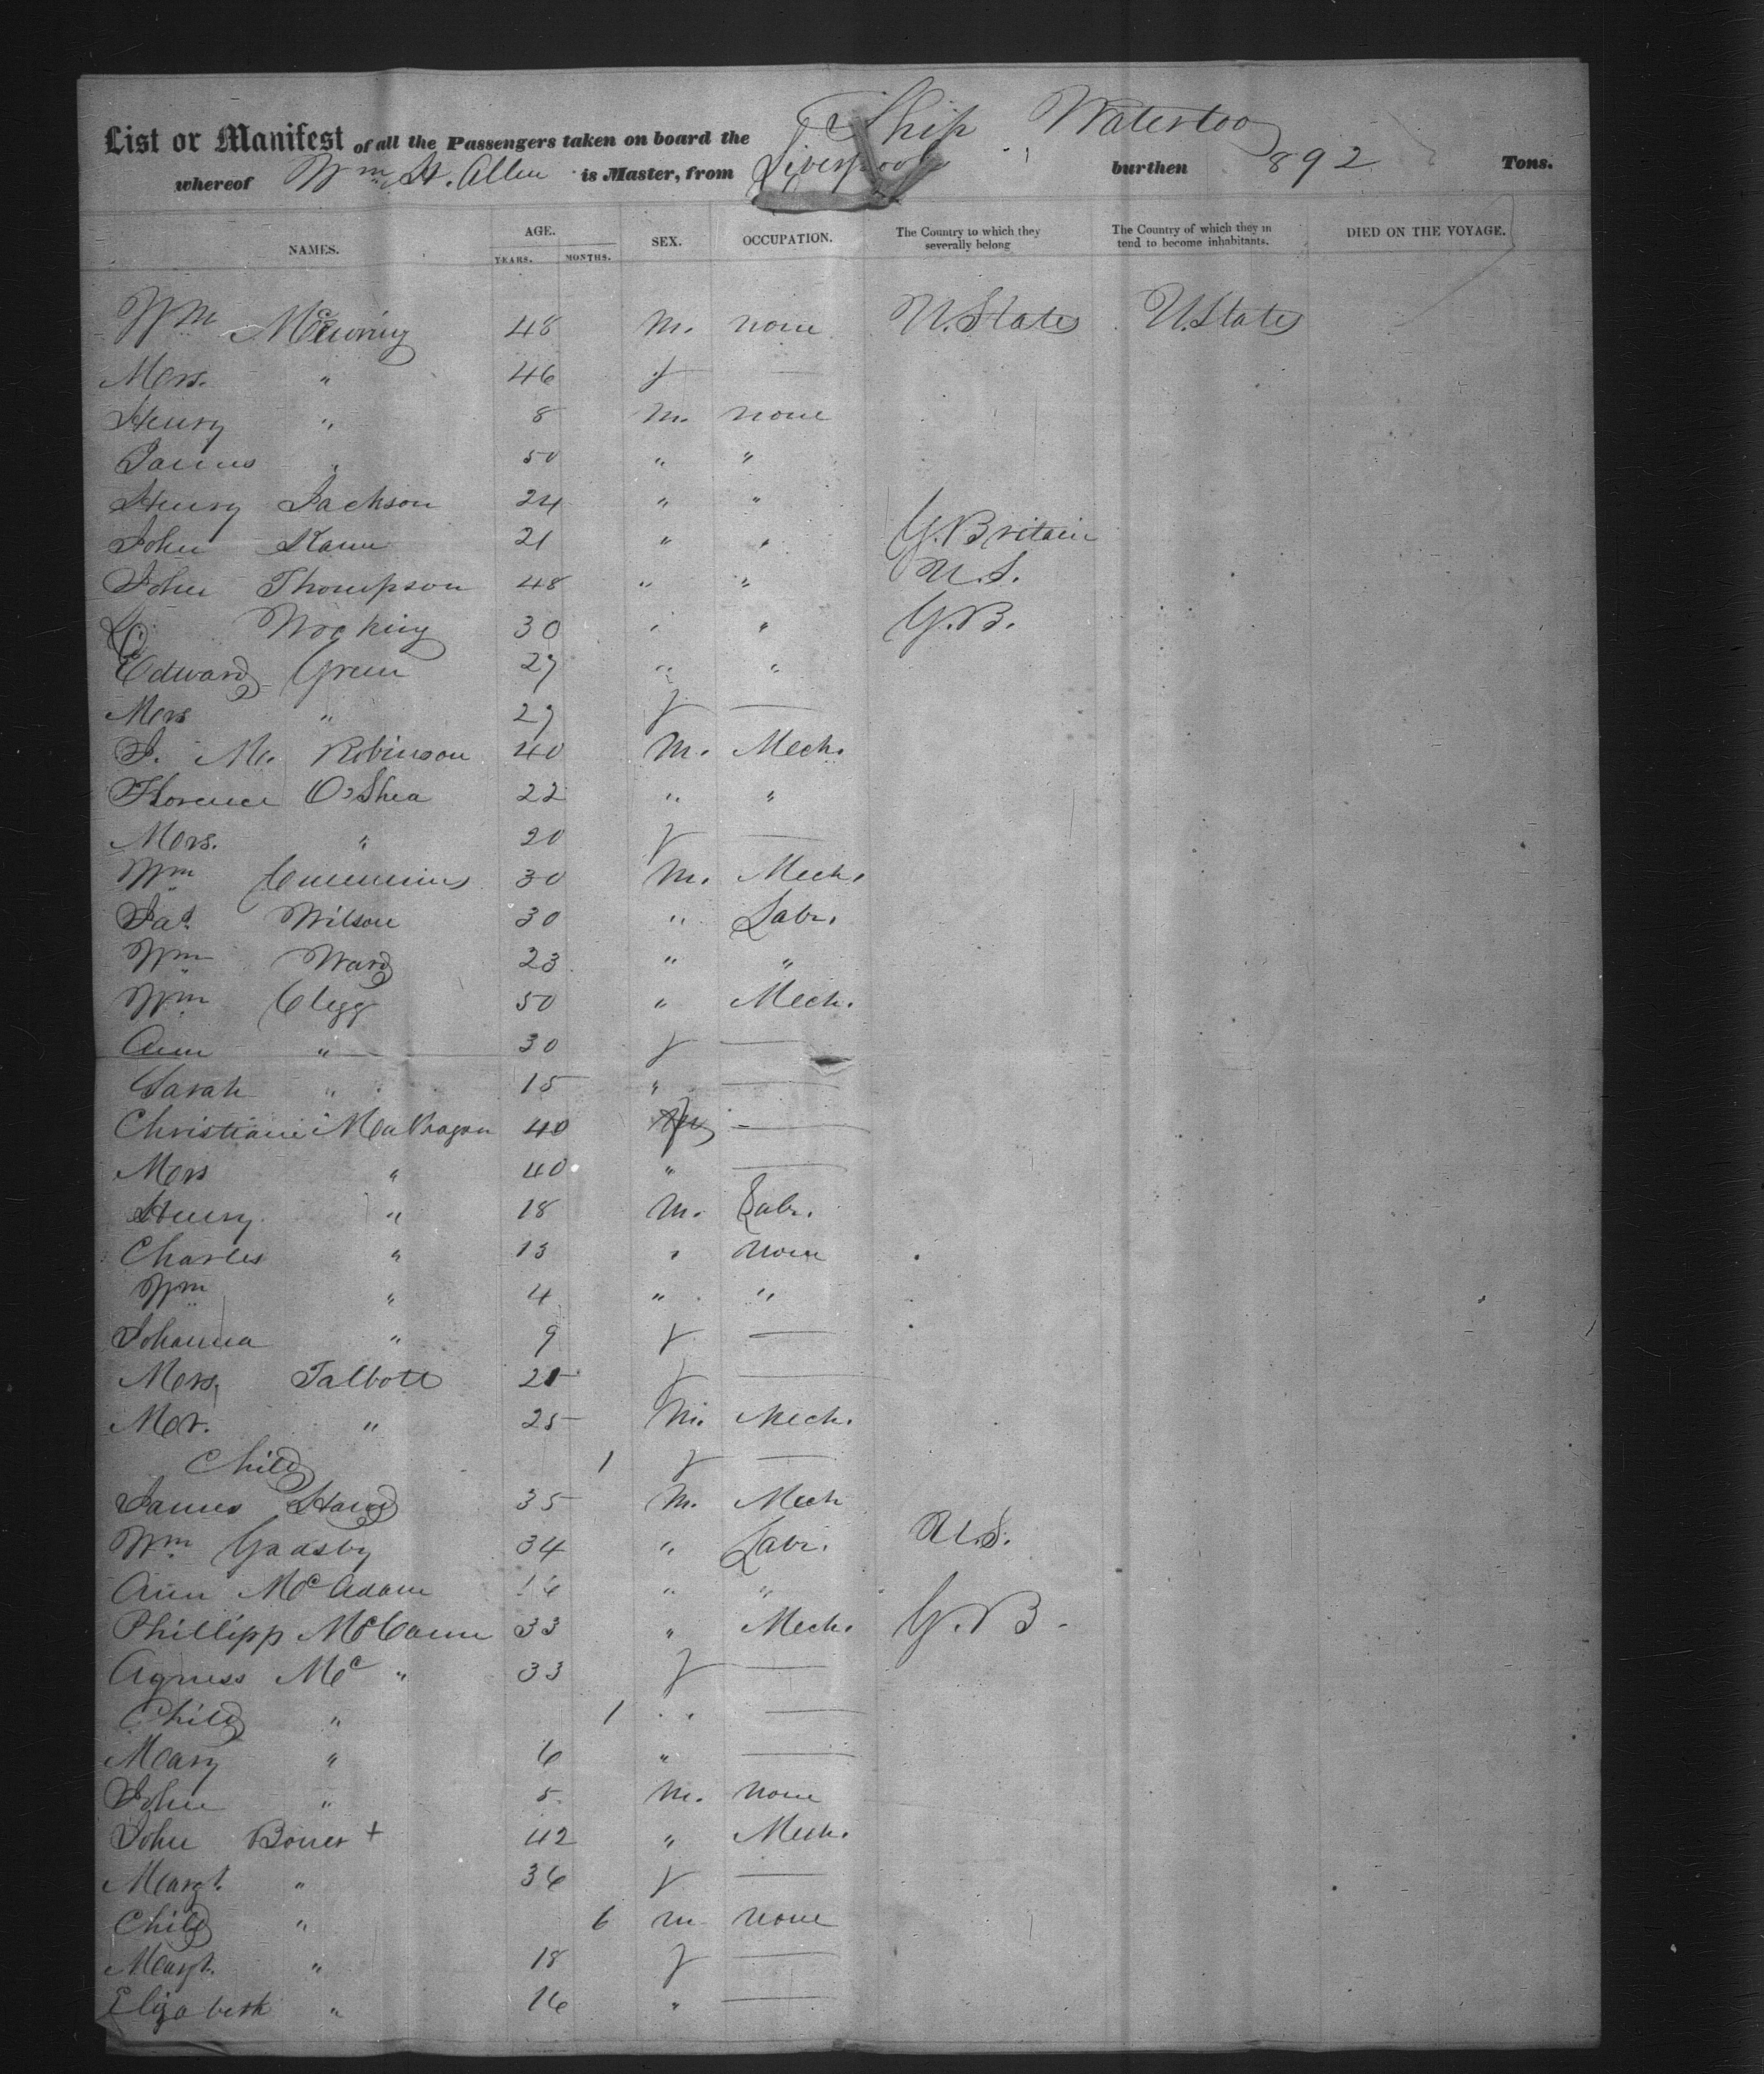 List or Manifest of all the Passengers taken on board the Ship Waterloo
whereof Wm H. Allen is Master, from Liverpool burthen 892 Tons.
NAMES. AGE. YEARS. MONTHS. SEX. OCCUPATION. The Country to which they severally belong The Country of which they in tend to become inhabitants. DIED ON THE VOYAGE.
Wm 48 M. none U. States U. States
Mrs. " 46 f —
Henry " 8 M. none
James " 50 " "
Henry Jackson 24 " "
John Kane 21 " " G. Britain
John Thompson 48 " " U.S.
30 " " G.B.
Edward Green 27 " "
Mrs " 27 f —
J. M. Robinson 40 M. Mech.
Florence O'Shea 22 " "
Mrs. " 20 f —
Wm Cummins 30 M. Mech.
Jas. Wilson 30 " Labr.
Wm Ward 23 " "
Wm Clegg 50 " Mech.
Ann " 30 f —
Sarah " 15 " —
Christiane 40 —
Mrs " 40 " —
Henry " 18 M. Labr.
Charles " 13 " none
Wm " 4 " "
Johanna " 9 f —
Mrs. Talbott 21 f —
Mr. " 25 M. Mech.
Child 1 f —
James Hand 35 M. Mech
Wm Gadsby 34 " Labr. U.S.
Ann McAdam 16 " "
Phillipp McCann 33 " Mech. G.B.
Agness Mc " 33 f —
Child " 1 " —
Mary " 6 " —
John " 5 M. none
John + 42 " Mech.
Margt. " 36 f —
Child " 6 m none
Margt. " 18 f —
Elizabeth " 16 " —